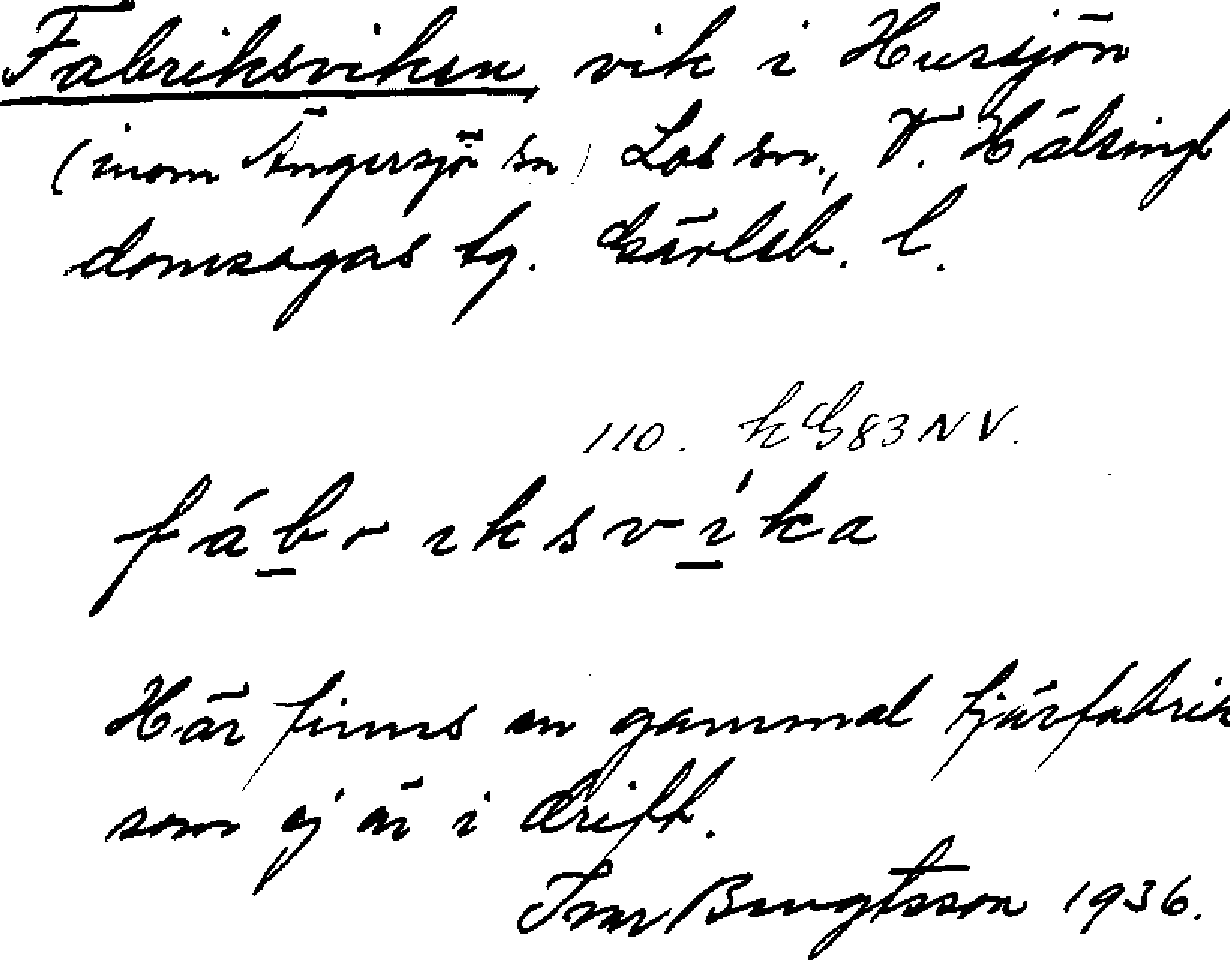 Fabriksviken, vik i Hussjön
(inom Ängersjö sn) Los sn., V. Hälsingl
domsagas tg. Gävleb. l.
110. kG83NV.
fábriksvíka
Här finns en gammal tjärfabrik
som ej är i drift.
Ivar Bengtsson 1936.